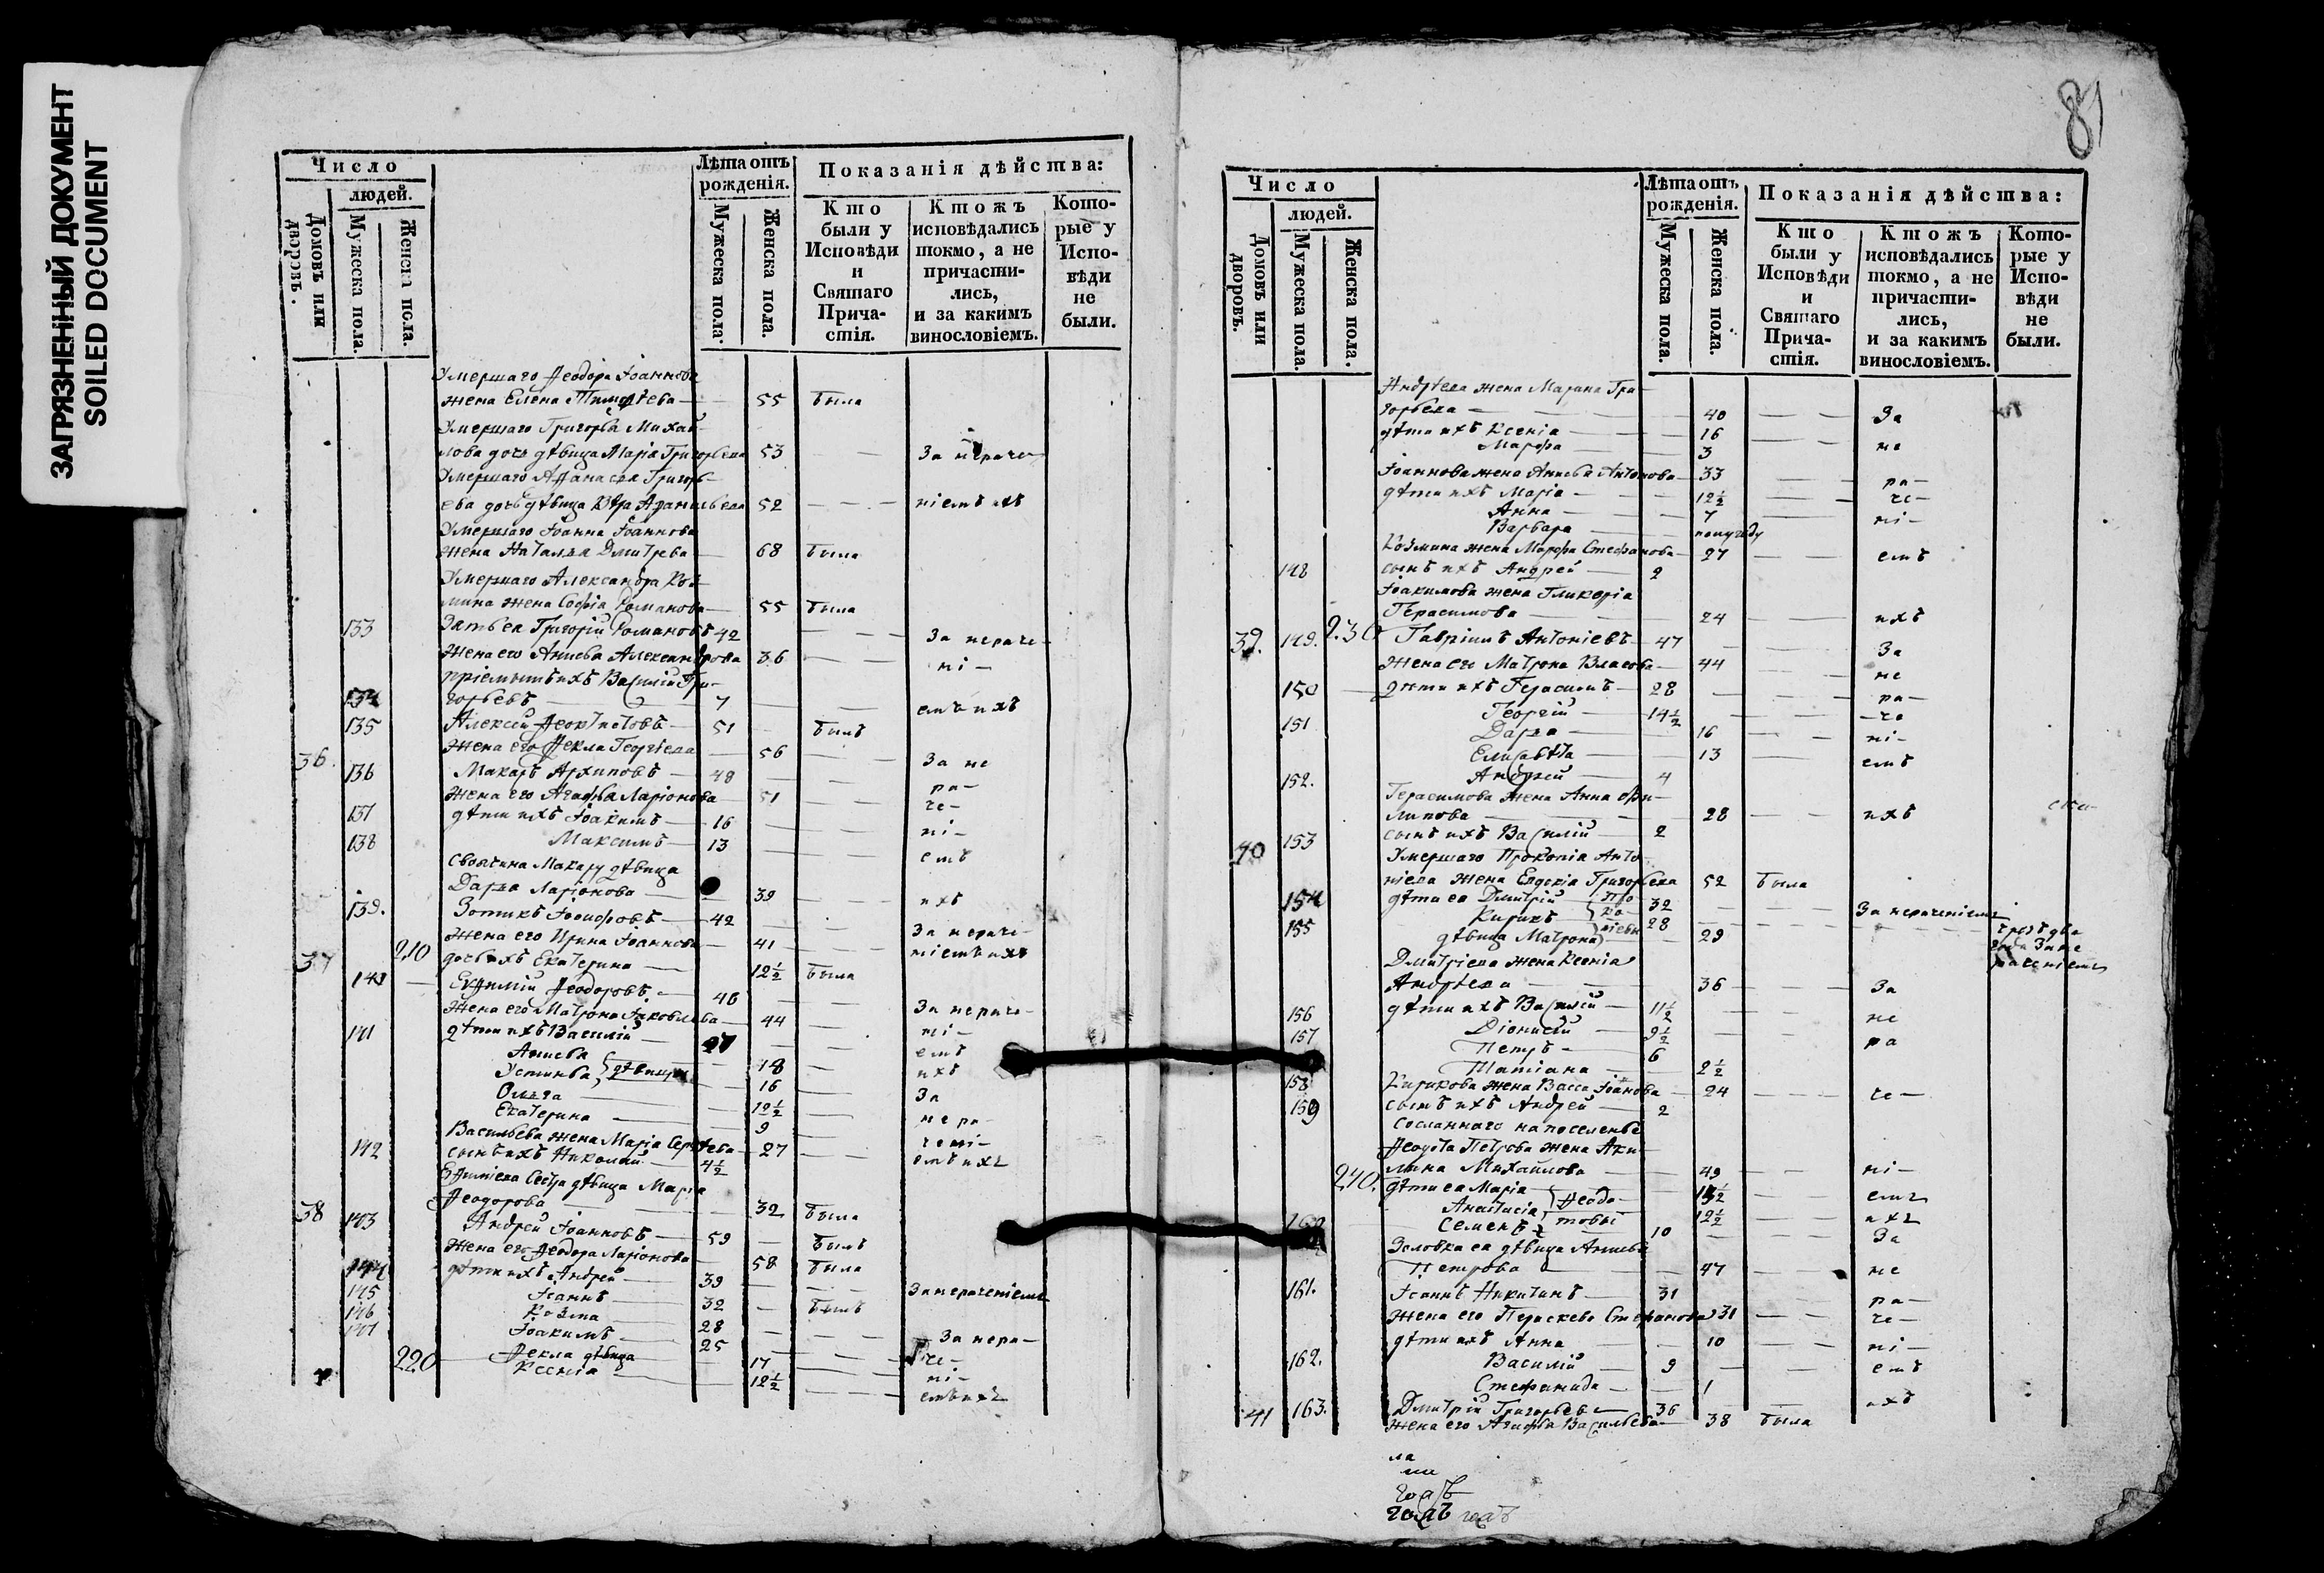 ЗАГРЯЗНЕННЫЙ ДОКУМЕНТ
SOILED DOCUMENT
Число
людей.
Домовъ или дворовъ.
Мужеска пола.
Женска пола.
Лѣта отъ рожденія.
Мужеска пола
Женска пола.
Показанія дѣйства:
Кто были у Исповѣди и Святаго Причастія.
Ктожъ исповѣдались токмо, а не причастились, и за какимъ винословіемъ.
Которые у Исповѣди не были.
Умершаго Ѳеодора Іоаннова
жена Елена Тимоѳѣева — 55 была
Умершаго Григорья Михай
лова дочь дѣвица Марія Григорьева 53 — — За нераче
Умершаго Аѳанасья Григорь
ева дочь дѣвица Вѣра Аѳанасьева 52 — — ніемъ ихъ
Умершаго Іоанна Іоаннова
жена Наталья Дмитрева — 68 была
Умершаго Александра Коз
мина жена Софія Романова — 55 была
133 Зять ея Григорій Романовъ 42 — — За нераче
Жена его Анисья Александрова 36 — — ні —
пріемышъ ихъ Василій Гри
134 горьевъ — 7 — — емъ ихъ
135 Алексѣй Ѳеоктистовъ — 51 былъ
Жена его Ѳекла Георгіева — 56
36. 136 Макаръ Архиповъ — 48 — — За не
Жена его Агафья Ларіонова — 51 — — ра —
137 дѣти ихъ Іоакимъ — 16 — — че —
138 Максимъ — 13 — — ні —
своячина Макару дѣвица емъ
Дарья Ларіонова — 39 — — ихъ
139. Зотикъ Іосифовъ — 42 — — За нераче
210 Жена его Ирина Іоаннова — 41 — — ніемъ ихъ
37 дочь ихъ Екатерина — 12½ была
140 — Евѳимій Ѳеодоровъ — 46 — —
Жена его Матрона Іаковлева — 44 — За нераче
141 дѣти ихъ Василій — 27 — — ні —
Анисья } дѣвицы — 18 — емъ
Устинья — 16 — ихъ
Ольга — 12½ — За
Екатерина — 9 — нера
Васильева жена Марія Сергѣева — 27 — чені —
142 сынъ ихъ Николай — 4½ емъ ихъ
Евѳиміева сестра дѣвица Марья
Ѳеодорова — 32 была
38 143 Андрей Іоанновъ — 59 — былъ
Жена его Ѳеодора Ларіонова — 58 была
144 дѣти ихъ Андрей — 39 — — За нераченіемъ
145 Іоаннъ — 32 — былъ
146 Козма — 28
147 Іоакимъ — 25 — — За нера —
220 Ѳекла дѣвица — 17 — — че —
Ксенія — 12½ — — ні —
емъ ихъ
81
Число
людей.
Домовъ или дворовъ.
Мужеска пола.
Женска пола.
Лѣта отъ рожденія.
Мужеска пола.
Женска пола.
Показанія дѣйства:
Кто были у Исповѣди и Святаго Причастія.
Ктожъ исповѣдались токмо, а не причастились, и за какимъ винословіемъ.
Которые у Исповѣди не были.
Андрѣева жена Марина Гри
горьева — 40 — — За
дѣти ихъ Ксенія — 16 — —
Марфа — 3 не
Іоаннова жена Анисья Антонова — 33 — — ра —
дѣти ихъ Марія — 12½ — че —
Анна — 7 — ні —
Варвара — полугоду
Козмина жена Марфа Стефанова — 27 емъ
148 сынъ ихъ Андрей — 2
Іоакимова жена Гликерія
Герасимова — 24 — ихъ
39. 149. 230 Гавріилъ Антоніевъ — 47 — — За
Жена его Матрона Власова — 44 — не
150 — дѣти ихъ Герасимъ — 28 — — ра —
151 Георгій — 14½ — — че
Дарья — 16 — ні —
Елисавѣта — 13 — емъ
152. Андрей — 4
Герасимова жена Анна Фи
липова — 28 — — ихъ
153 сынъ ихъ Василій — 2
40 Умершаго Прокопія Анто
ніева жена Евдокія Григорьева 52 была
154 дѣти ея Дмитрій } Про 32 — — За нераченіемъ
155 Кирикъ } ко 28 — — —
дѣвица Матрона } піевы 29
Дмитріева жена Ксенія
Андрѣева — 36 — — За
156 дѣти ихъ Василій — 11½ — не
157 Діонисій — 9½ — ра
Петръ — 6
158 Татіана — 2½
Кирикова жена Васса Іоанова — 24 — — че —
159 сынъ ихъ Андрей — 2
сосланнаго на поселенье
Ѳеодота Петрова жена Аку
240. лина Михайлова — 49 — ні —
дѣти ея Марія } Ѳеодо — емъ
Анастасія } товы 12½ — ихъ
Семенъ 10 — За
Золовка ея дѣвица Анисья
Петрова — 47 — не
161. Іоаннъ Никитинъ — 31 — ра —
Жена его Параскева Стефанова 31 — — че —
дѣти ихъ Анна — 10 — — ні —
162. Василій — 9 — — емъ
Стефанида — 1
41 163. Дмитрій Григорьевъ — 36 ихъ
Жена его Агафья Васильева — 38 была
ла
годъ
годъ годъ